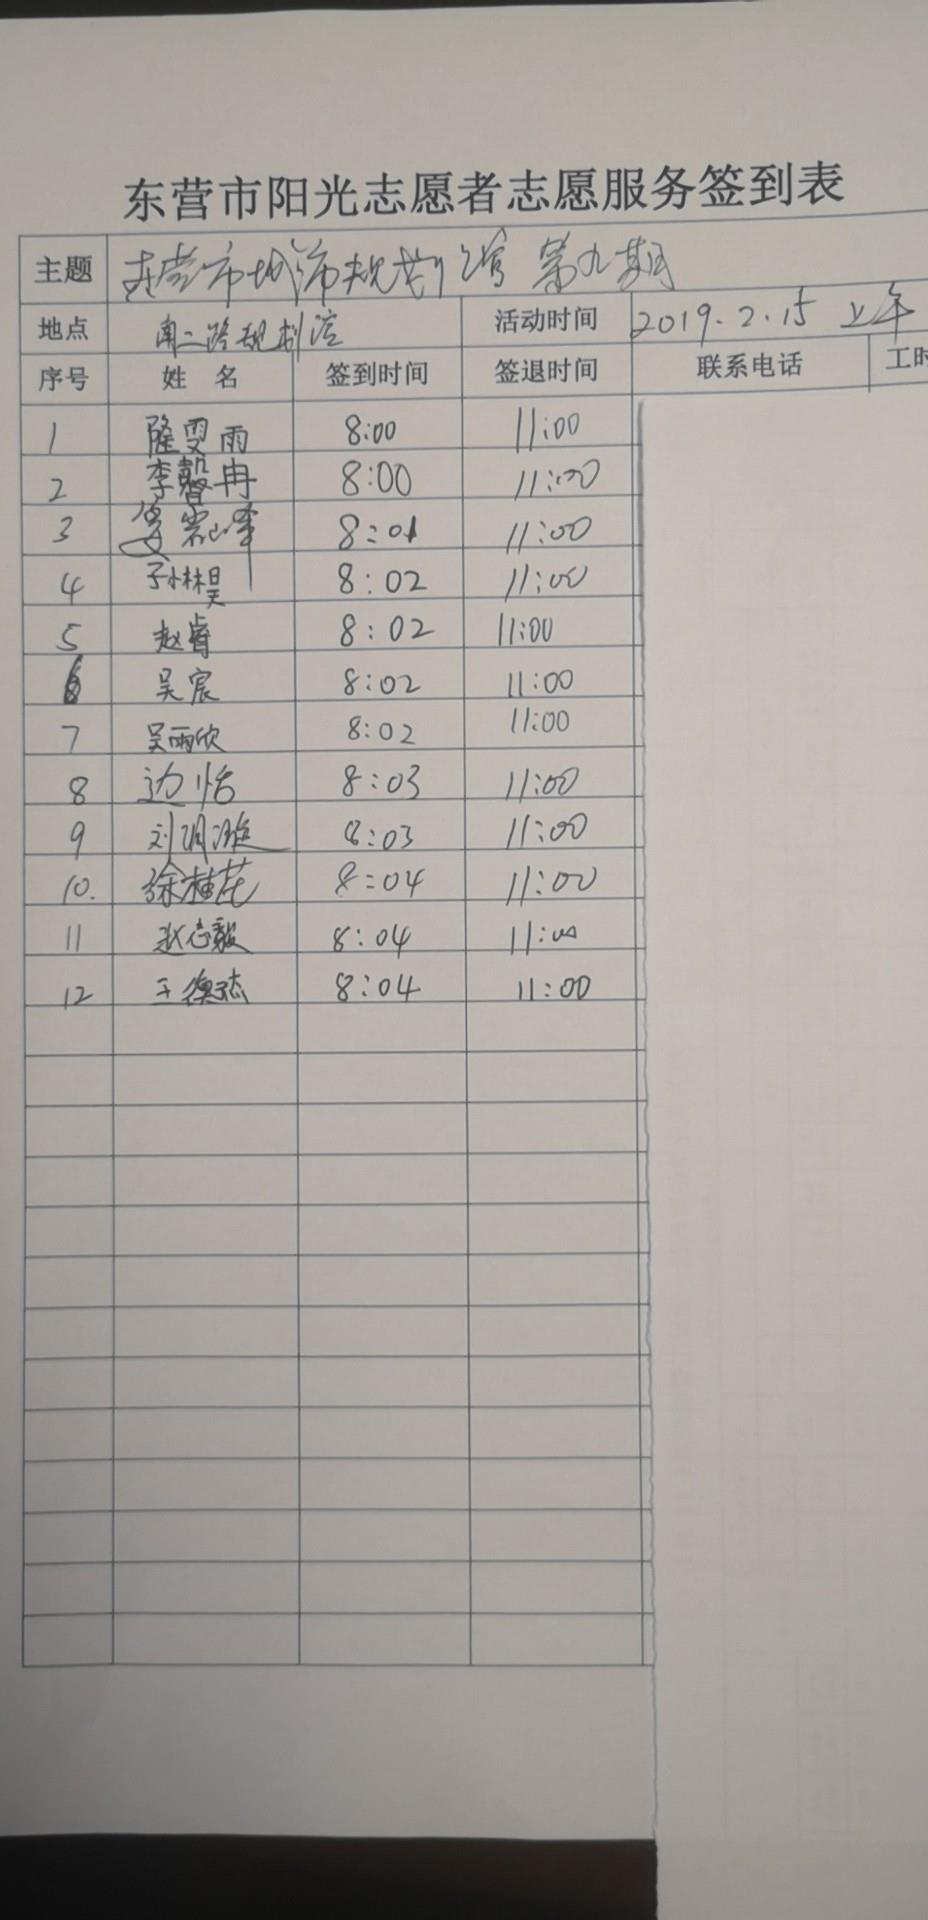 东营市阳光志愿者志愿服务签到表
主题 东营市城市规划馆 第九期
地点 南二路规划馆 活动时间 2019.2.15 上午
序号 姓 名 签到时间 签退时间 联系电话 工时
1 隆雯雨 8:00 11:00
2 李馨冉 8:00 11:00
3 8:01 11:00
4 孙林昊 8:02 11:00
5 赵睿 8:02 11:00
6 吴宸 8:02 11:00
7 吴雨欣 8:02 11:00
8 边恬 8:03 11:00
9 刘 8:03 11:00
10. 徐桂花 8:04 11:00
11 志毅 8:04 11:00
12 王 8:04 11:00